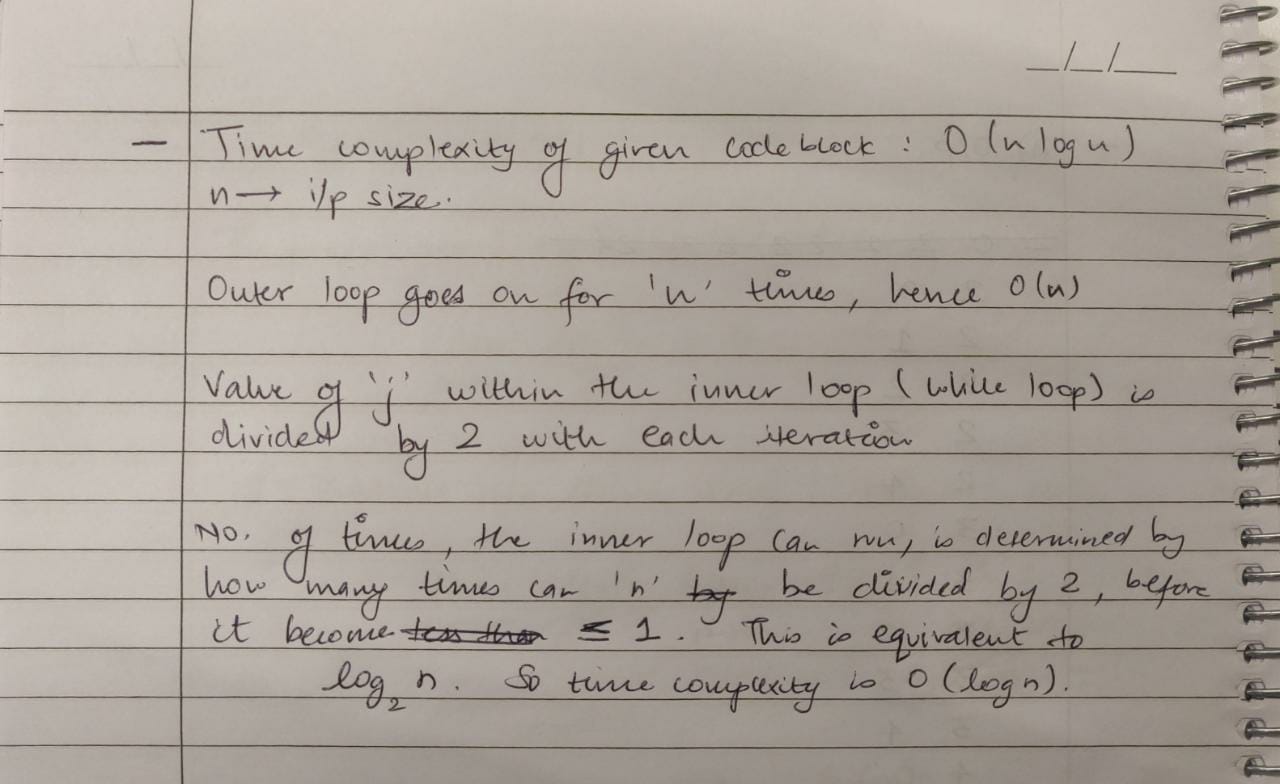 _/_/_
— Time complexity of given codeblock : O(n log n)
n → i/p size.
Outer loop goes on for 'n' times, hence O(n)
Value of 'j' within the inner loop (while loop) is
divided by 2 with each iteration
No. of times, the inner loop can run, is determined by
how many times can 'n' by be divided by 2, before
it become less than ≤ 1. This is equivalent to
log₂ n. So time complexity is O(log n).